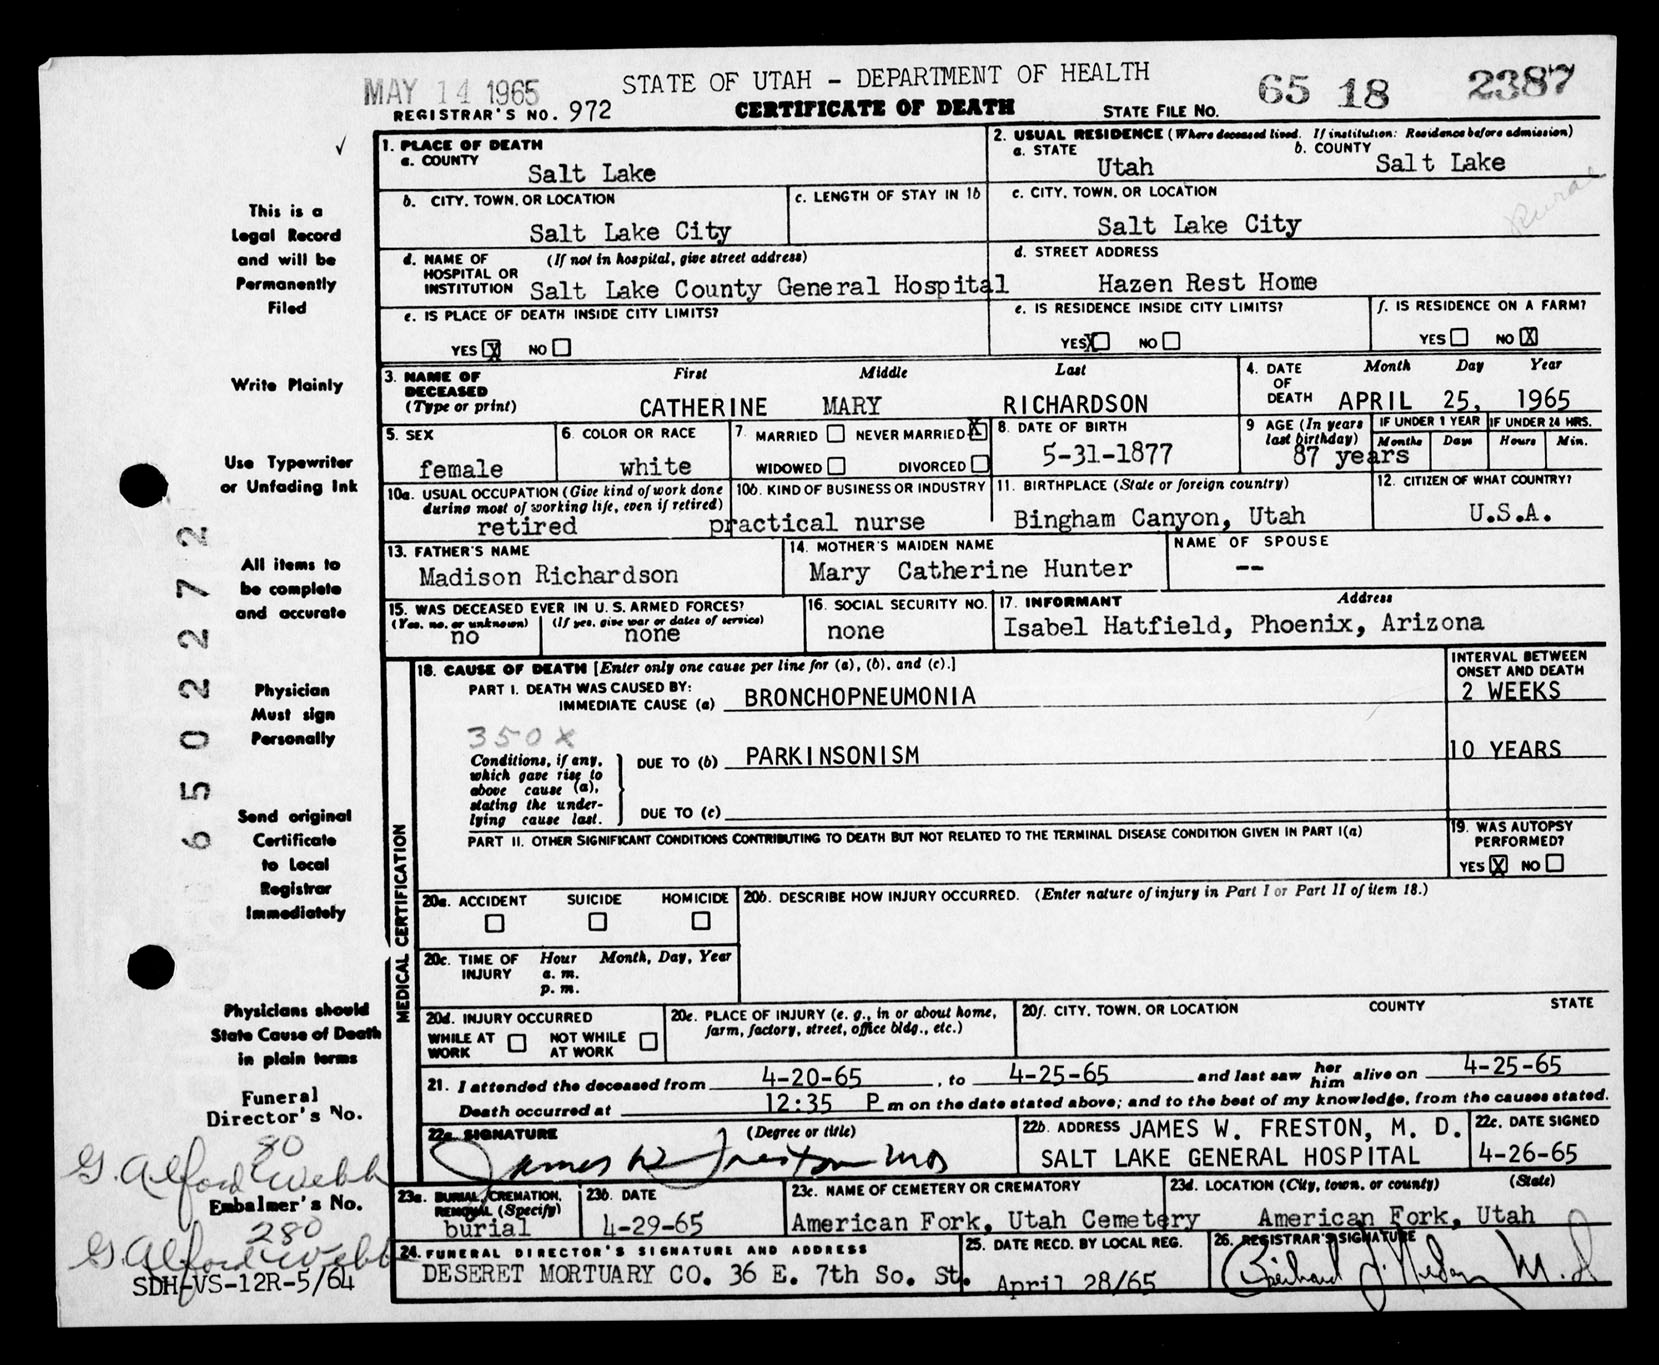 MAY 14 1965
STATE OF UTAH - DEPARTMENT OF HEALTH
65 18 2387
REGISTRAR'S NO. 972
CERTIFICATE OF DEATH
STATE FILE NO.
This is a
Legal Record
and will be
Permanently
Filed
Write Plainly
Use Typewriter
or Unfading Ink
All items to
be complete
and accurate
Physician
Must sign
Personally
Send original
Certificate
to Local
Registrar
Immediately
Physicians should
State Cause of Death
in plain terms
Funeral
Director's No.
80
G. Alford Webb
Embalmer's No.
280
G. Alford Webb
SDH-VS-12R-5/64
65022722
1. PLACE OF DEATH
a. COUNTY
Salt Lake
2. USUAL RESIDENCE (Where deceased lived. If institution: Residence before admission)
a. STATE
Utah
b. COUNTY
Salt Lake
Rural
b. CITY, TOWN, OR LOCATION
Salt Lake City
c. LENGTH OF STAY IN 1b
c. CITY, TOWN, OR LOCATION
Salt Lake City
d. NAME OF (If not in hospital, give street address)
HOSPITAL OR
INSTITUTION Salt Lake County General Hospital
d. STREET ADDRESS
Hazen Rest Home
e. IS PLACE OF DEATH INSIDE CITY LIMITS?
YES X NO
e. IS RESIDENCE INSIDE CITY LIMITS?
YES X NO
f. IS RESIDENCE ON A FARM?
YES NO X
3. NAME OF
DECEASED
(Type or print)
First Middle Last
CATHERINE MARY RICHARDSON
4. DATE
OF
DEATH
Month Day Year
APRIL 25, 1965
5. SEX
female
6. COLOR OR RACE
white
7. MARRIED NEVER MARRIED X
WIDOWED DIVORCED
8. DATE OF BIRTH
5-31-1877
9 AGE (In years
last birthday)
87 years
IF UNDER 1 YEAR
Months Days
IF UNDER 24 HRS.
Hours Min.
10a. USUAL OCCUPATION (Give kind of work done
during most of working life, even if retired)
retired
10b. KIND OF BUSINESS OR INDUSTRY
practical nurse
11. BIRTHPLACE (State or foreign country)
Bingham Canyon, Utah
12. CITIZEN OF WHAT COUNTRY?
U.S.A.
13. FATHER'S NAME
Madison Richardson
14. MOTHER'S MAIDEN NAME
Mary Catherine Hunter
NAME OF SPOUSE
--
15. WAS DECEASED EVER IN U.S. ARMED FORCES?
(Yes, no, or unknown) (If yes, give war or dates of service)
no none
16. SOCIAL SECURITY NO.
none
17. INFORMANT Address
Isabel Hatfield, Phoenix, Arizona
MEDICAL CERTIFICATION
18. CAUSE OF DEATH [Enter only one cause per line for (a), (b), and (c).]
INTERVAL BETWEEN
ONSET AND DEATH
PART I. DEATH WAS CAUSED BY:
IMMEDIATE CAUSE (a) BRONCHOPNEUMONIA 2 WEEKS
350X
Conditions, if any,
which gave rise to
above cause (a),
stating the under-
lying cause last.
DUE TO (b) PARKINSONISM 10 YEARS
DUE TO (c)
PART II. OTHER SIGNIFICANT CONDITIONS CONTRIBUTING TO DEATH BUT NOT RELATED TO THE TERMINAL DISEASE CONDITION GIVEN IN PART I(a)
19. WAS AUTOPSY
PERFORMED?
YES X NO
20a. ACCIDENT SUICIDE HOMICIDE
20b. DESCRIBE HOW INJURY OCCURRED. (Enter nature of injury in Part I or Part II of item 18.)
20c. TIME OF Hour Month, Day, Year
INJURY a. m.
p. m.
20d. INJURY OCCURRED
WHILE AT WORK NOT WHILE AT WORK
20e. PLACE OF INJURY (e. g., in or about home,
farm, factory, street, office bldg., etc.)
20f. CITY, TOWN, OR LOCATION COUNTY STATE
21. I attended the deceased from 4-20-65, to 4-25-65 and last saw her him alive on 4-25-65
Death occurred at 12:35 P m on the date stated above; and to the best of my knowledge, from the causes stated.
22a. SIGNATURE (Degree or title)
James W Freston MD
22b. ADDRESS JAMES W. FRESTON, M. D.
SALT LAKE GENERAL HOSPITAL
22c. DATE SIGNED
4-26-65
23a. BURIAL, CREMATION,
REMOVAL (Specify)
burial
23b. DATE
4-29-65
23c. NAME OF CEMETERY OR CREMATORY
American Fork, Utah Cemetery
23d. LOCATION (City, town, or county) (State)
American Fork, Utah
24. FUNERAL DIRECTOR'S SIGNATURE AND ADDRESS
DESERET MORTUARY CO. 36 E. 7th So. St.
25. DATE RECD. BY LOCAL REG.
April 28/65
26. REGISTRAR'S SIGNATURE
M.D